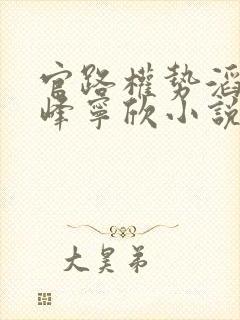 官路權勢滔
峰寧欣小說
大昊弟